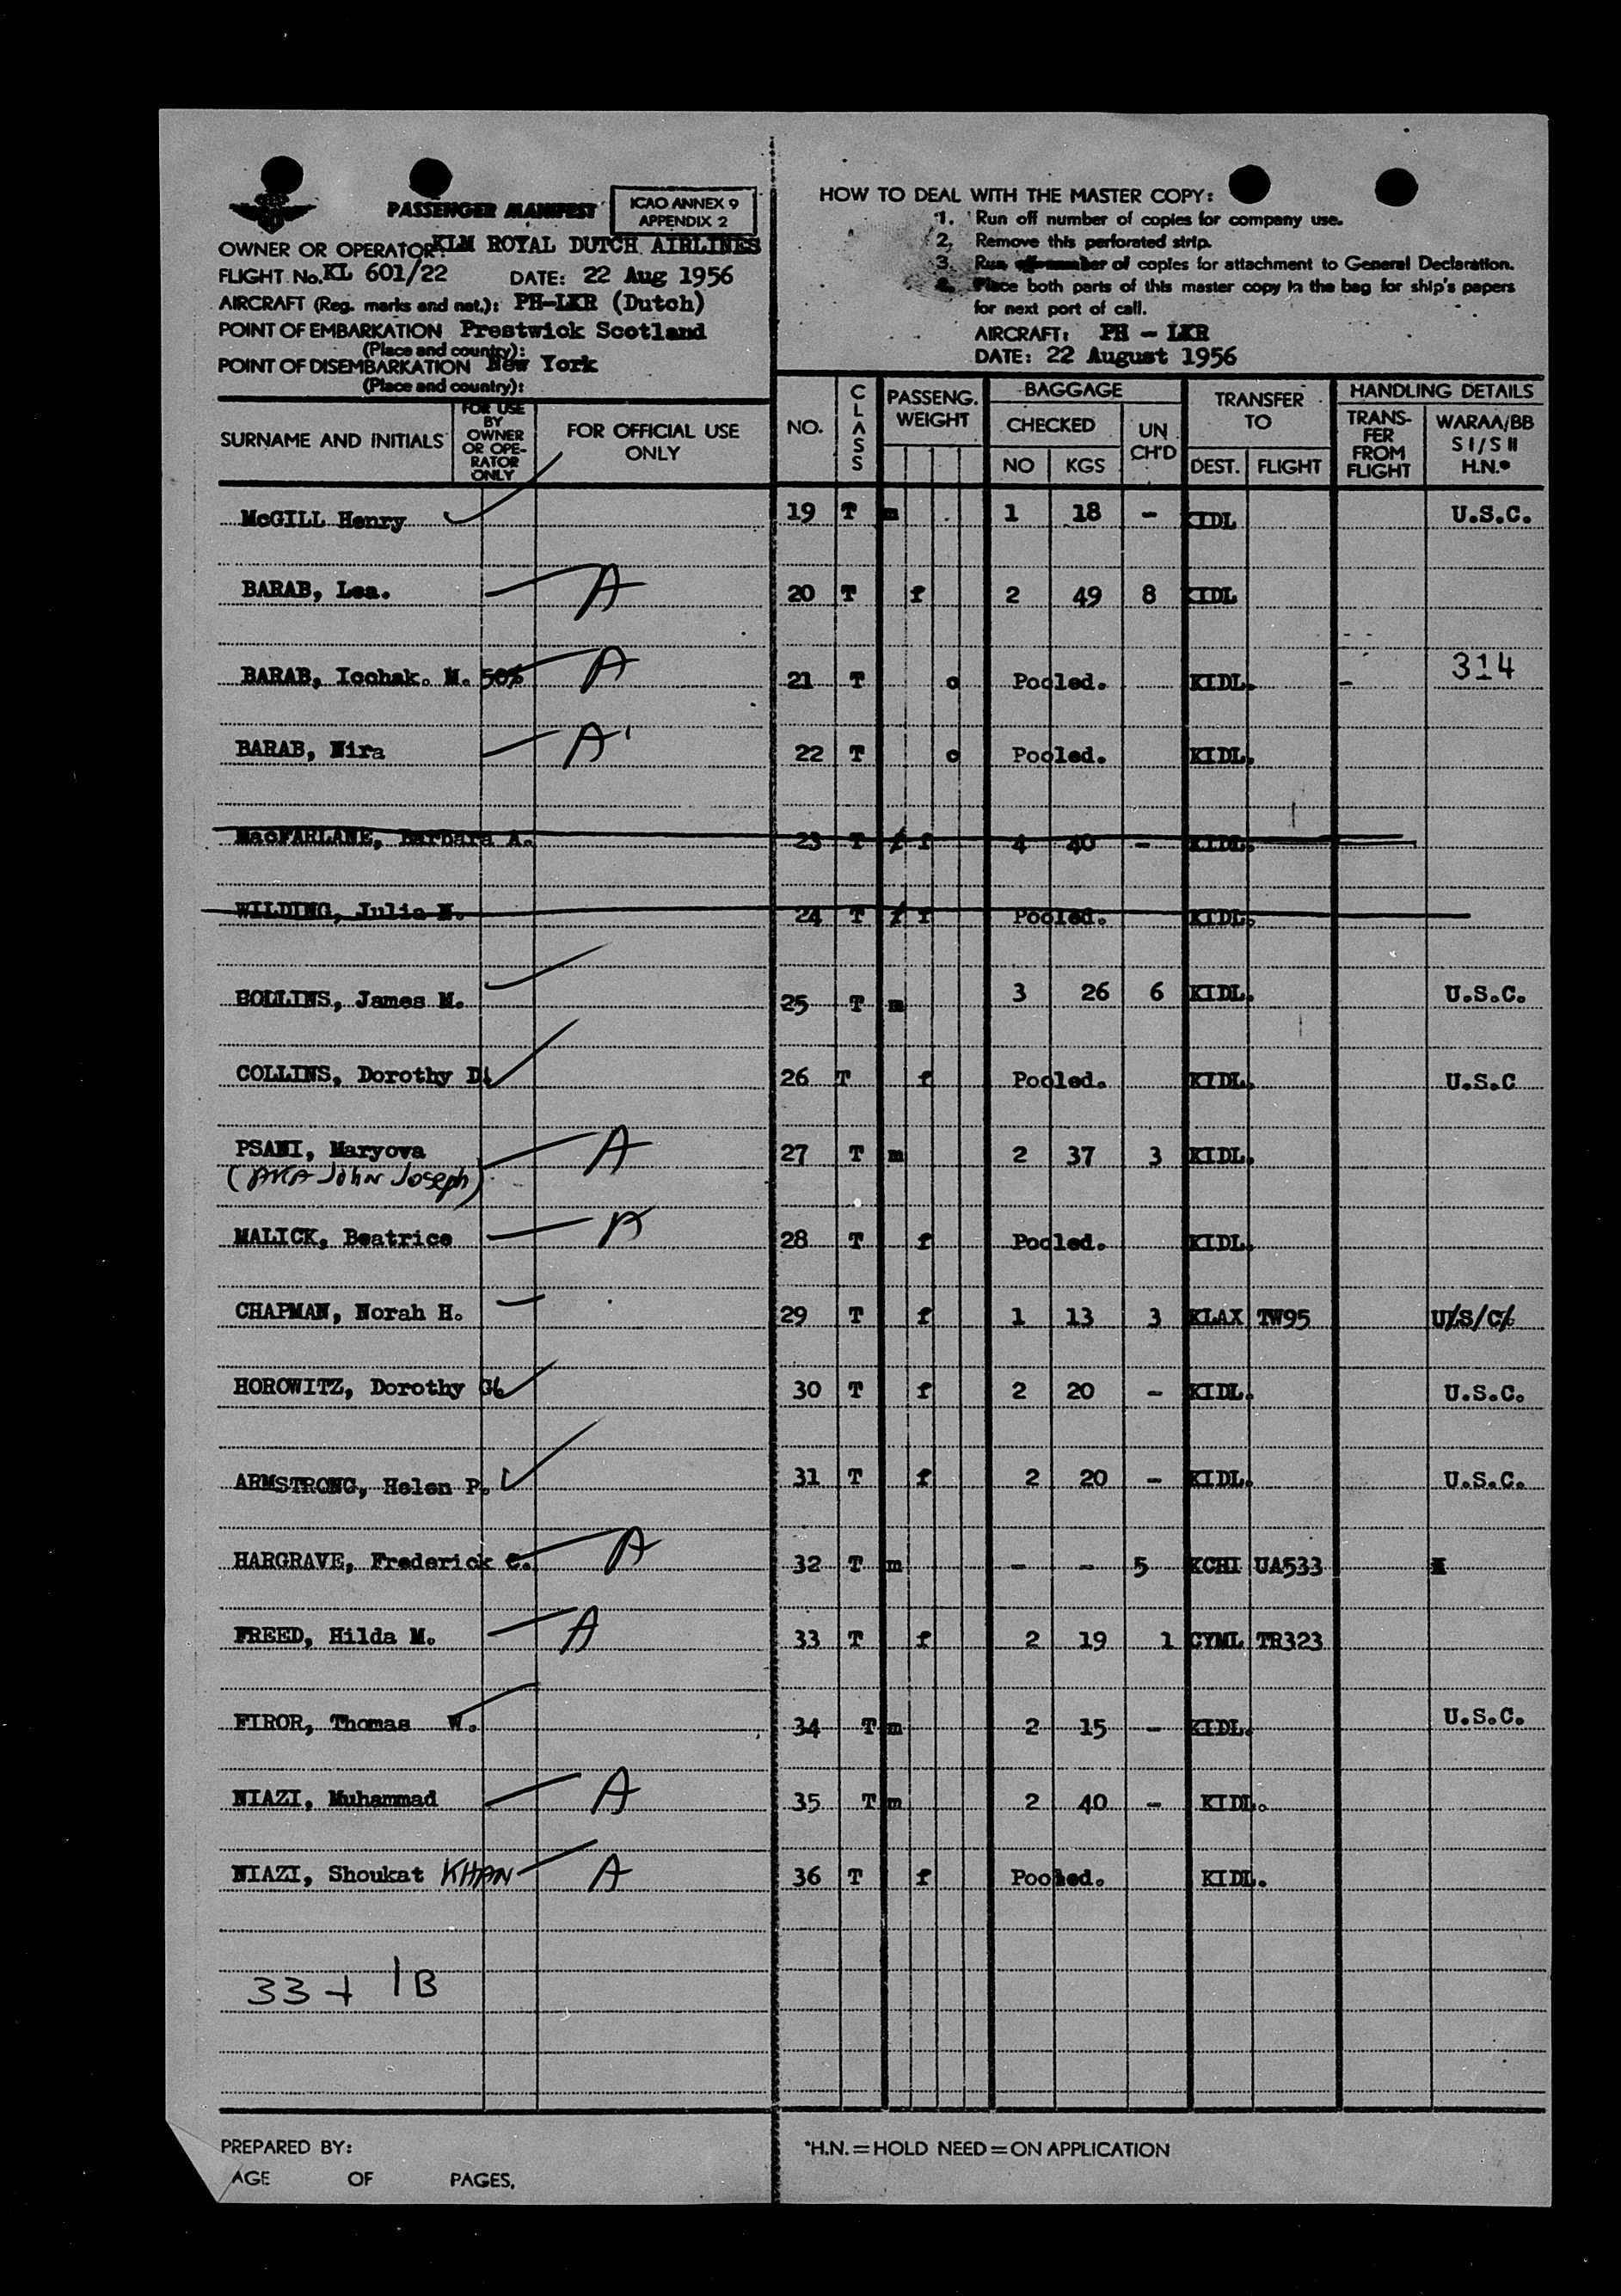 PASSENGER MANIFEST
ICAO ANNEX 9
APPENDIX 2
OWNER OR OPERATOR: KLM ROYAL DUTCH AIRLINES
FLIGHT No. KL 601/22 DATE: 22 Aug 1956
AIRCRAFT (Reg. marks and nat.): PH-LKR (Dutch)
POINT OF EMBARKATION Prestwick Scotland
(Place and country):
POINT OF DISEMBARKATION New York
(Place and country):
HOW TO DEAL WITH THE MASTER COPY:
1. Run off number of copies for company use.
2. Remove this perforated strip.
3. Run off number of copies for attachment to General Declaration.
4. Place both parts of this master copy in the bag for ship's papers
for next port of call.
AIRCRAFT: PH - LKR
DATE: 22 August 1956
SURNAME AND INITIALS
FOR USE BY OWNER OR OPE-RATOR ONLY
FOR OFFICIAL USE ONLY
NO.
CLASS
PASSENG. WEIGHT
BAGGAGE
CHECKED
NO KGS
UN CH'D
TRANSFER TO
DEST. FLIGHT
HANDLING DETAILS
TRANS-FER FROM FLIGHT
WARAA/BB S I/S II H.N.*
McGILL Henry 19 T m 1 18 - KIDL U.S.C.
BARAB, Lea. A 20 T f 2 49 8 KIDL
BARAB, Iochak. M. 50% A 21 T c Pooled. KIDL. - 314
BARAB, Nira A 22 T c Pooled. KIDL.
MacFARLANE, Barbara A. 23 T f 4 40 - KIDL.
WILDING, Julia N. 24 T f Pooled. KIDL.
COLLINS, James M. 25 T m 3 26 6 KIDL. U.S.C.
COLLINS, Dorothy D. 26 T f Pooled. KIDL. U.S.C
PSANI, Maryova A 27 T m 2 37 3 KIDL.
(AKA John Joseph)
MALICK, Beatrice A 28 T f Pooled. KIDL.
CHAPMAN, Norah H. 29 T f 1 13 3 KLAX TW95 U/S/C/
HOROWITZ, Dorothy G 30 T f 2 20 - KIDL. U.S.C.
ARMSTRONG, Helen P. 31 T f 2 20 - KIDL. U.S.C.
HARGRAVE, Frederick C. A 32 T m - - 5 KCHI UA533
FREED, Hilda M. A 33 T f 2 19 1 CYML TR323
FIROR, Thomas W. 34 T m 2 15 - KIDL. U.S.C.
NIAZI, Muhammad A 35 T m 2 40 - KIDL.
NIAZI, Shoukat KHAN A 36 T f Pooled. KIDL.
33 + 1B
PREPARED BY:
AGE OF PAGES,
*H.N. = HOLD NEED = ON APPLICATION